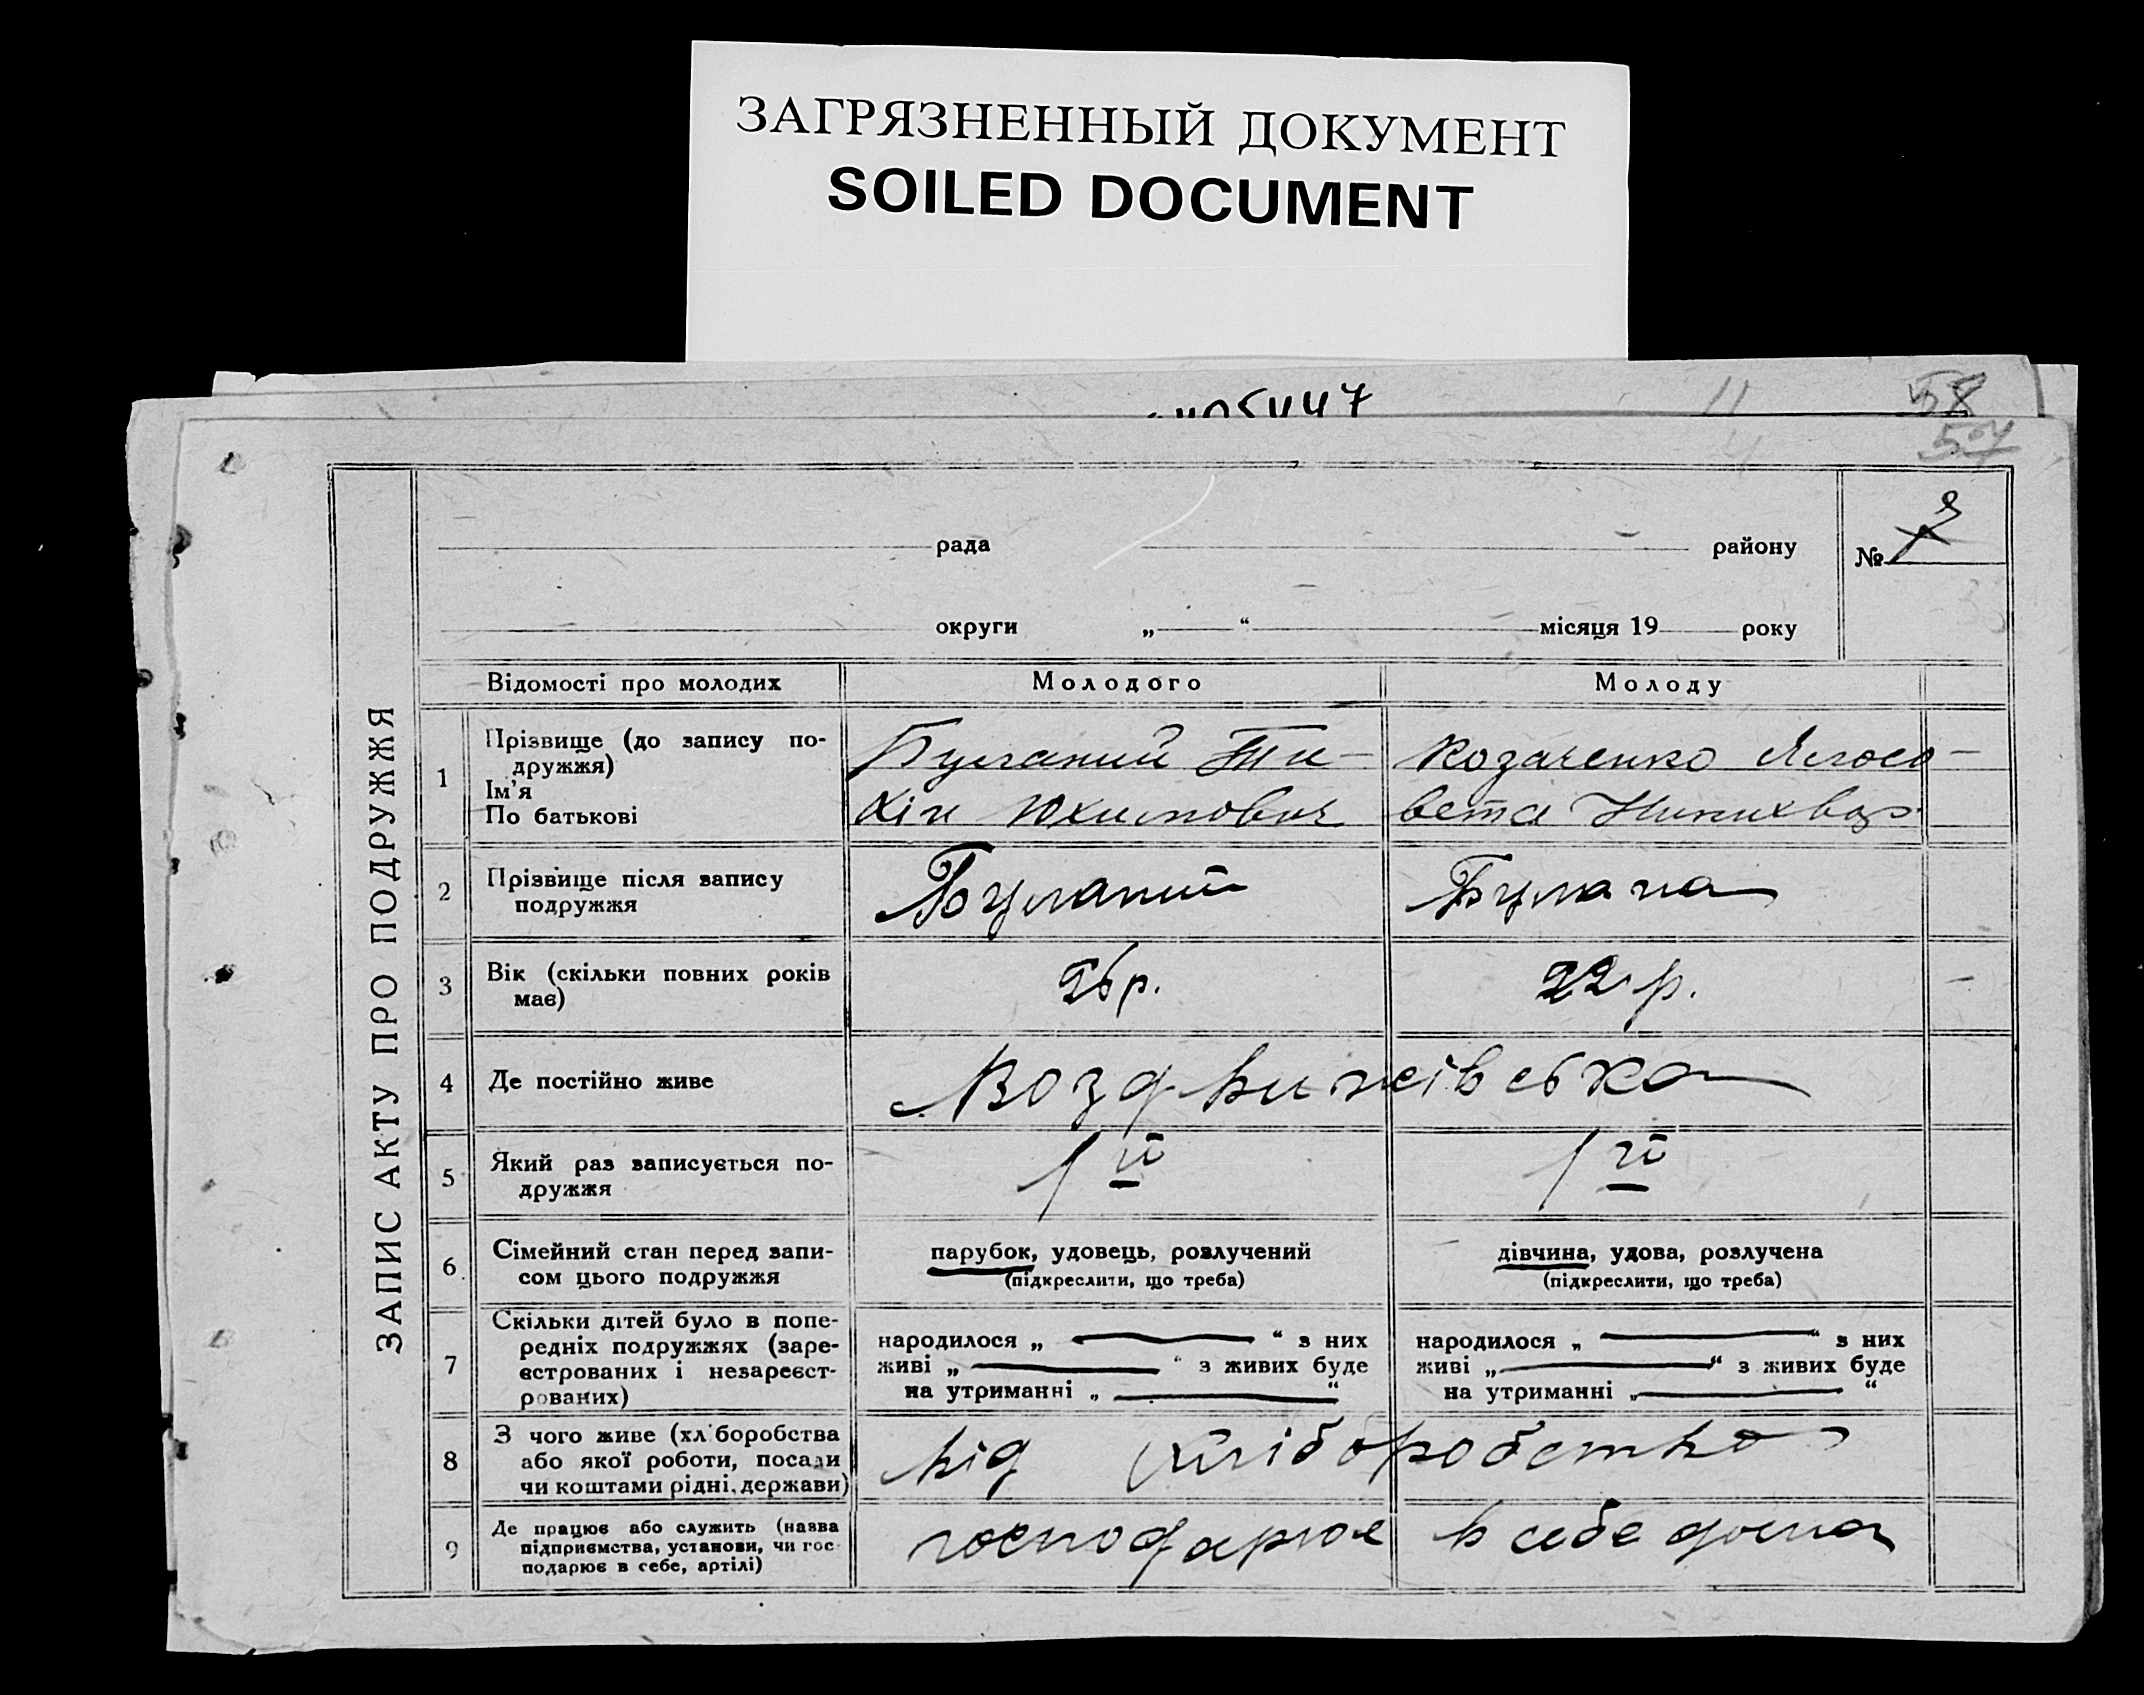 ЗАГРЯЗНЕННЫЙ ДОКУМЕНТ
SOILED DOCUMENT
58
57
ЗАПИС АКТУ ПРО ПОДРУЖЖЯ
рада району №
округи „ “ місяця 19 року
Відомості про молодих Молодого Молоду
1 Прізвище (до запису по-
дружжя)
Ім'я
По батькові
Буланий Ти-
хін Юхимович
Козаченко Ялосо-
вета Никихвор
2 Прізвище після запису
подружжя
Буланий Булана
3 Вік (скільки повних років
має)
26 р. 22 р.
4 Де постійно живе
Воздвижівська
5 Який раз записується по-
дружжя
1 й 1 й
6 Сімейний стан перед запи-
сом цього подружжя
парубок, удовець, розлучений
(підкреслити, що треба)
дівчина, удова, розлучена
(підкреслити, що треба)
7 Скільки дітей було в попе-
редніх подружжях (заре-
єстрованих і незареєст-
рованих)
народилося „ “ з них
живі „ “ з живих буде
на утриманні „ “
народилося „ “ з них
живі „ “ з живих буде
на утриманні „ “
8 З чого живе (хліборобства
або якої роботи, посади
чи коштами рідні, держави)
від хліборобства
9 Де працює або служить (назва
підприємства, установи, чи гос-
подарює в себе, артілі)
господарює в себе дома